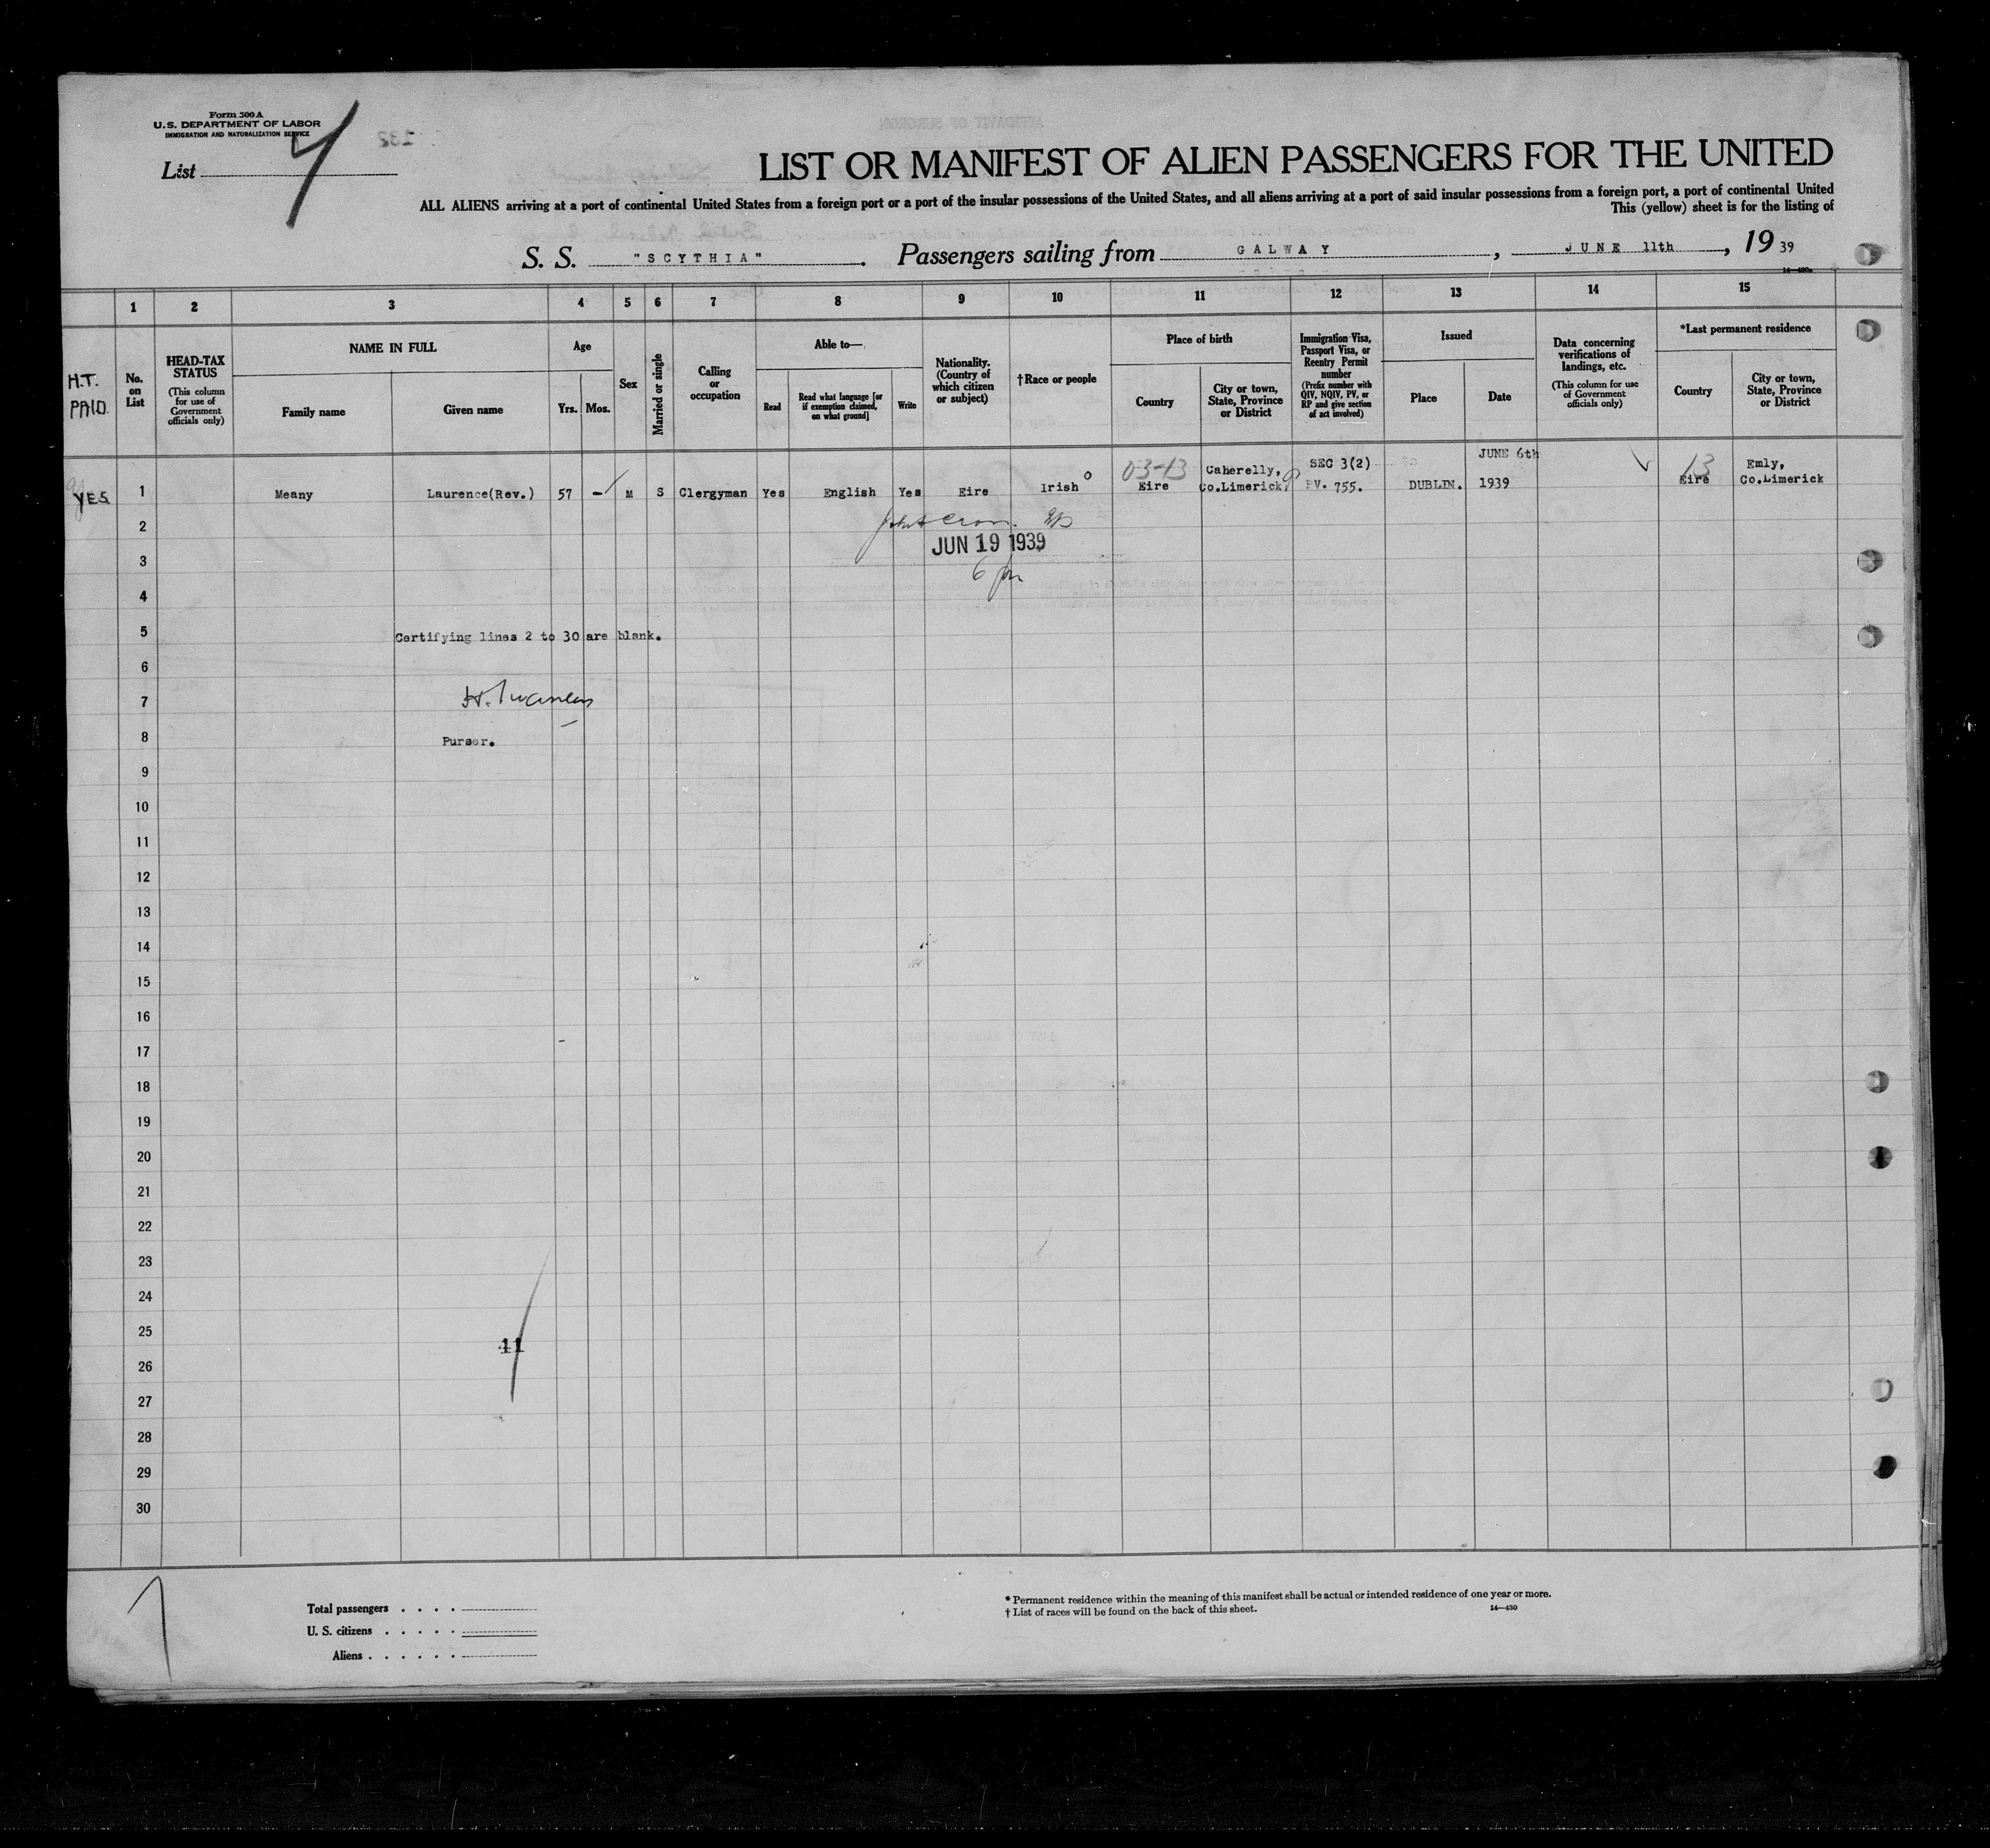 Form 500 A
U.S. DEPARTMENT OF LABOR
IMMIGRATION AND NATURALIZATION SERVICE
List 4
LIST OR MANIFEST OF ALIEN PASSENGERS FOR THE UNITED
ALL ALIENS arriving at a port of continental United States from a foreign port or a port of the insular possessions of the United States, and all aliens arriving at a port of said insular possessions from a foreign port, a port of continental United
This (yellow) sheet is for the listing of
S. S. "SCYTHIA". Passengers sailing from GALWAY, JUNE 11th, 19 39
1 2 3 4 5 6 7 8 9 10 11 12 13 14 15
H.T. PAID.
No. on List
HEAD-TAX STATUS
(This column for use of Government officials only)
NAME IN FULL
Family name
Given name
Age
Yrs. Mos.
Sex
Married or single
Calling or occupation
Able to—
Read
Read what language [or if exemption claimed, on what ground]
Write
Nationality. (Country of which citizen or subject)
†Race or people
Place of birth
Country
City or town, State, Province or District
Immigration Visa, Passport Visa, or Reentry Permit number
(Prefix number with QIV, NQIV, PV, or RP and give section of act involved)
Issued
Place
Date
Data concerning verifications of landings, etc.
(This column for use of Government officials only)
*Last permanent residence
Country
City or town, State, Province or District
03-13 Caherelly, SEC 3(2) JUNE 6th 13 Emly,
YES 1 Meany Laurence(Rev.) 57 - M S Clergyman Yes English Yes Eire Irish Eire Co.Limerick PV. 755. DUBLIN. 1939 Eire Co.Limerick
2
JUN 19 1939
3
6 pm
4
5 Certifying lines 2 to 30 are blank.
6
7
8 Purser.
9
10
11
12
13
14
15
16
17
18
19
20
21
22
23
24
25
41
26
27
28
29
30
Total passengers . . . .
U. S. citizens . . . . .
Aliens . . . . . .
* Permanent residence within the meaning of this manifest shall be actual or intended residence of one year or more.
† List of races will be found on the back of this sheet.
14—430